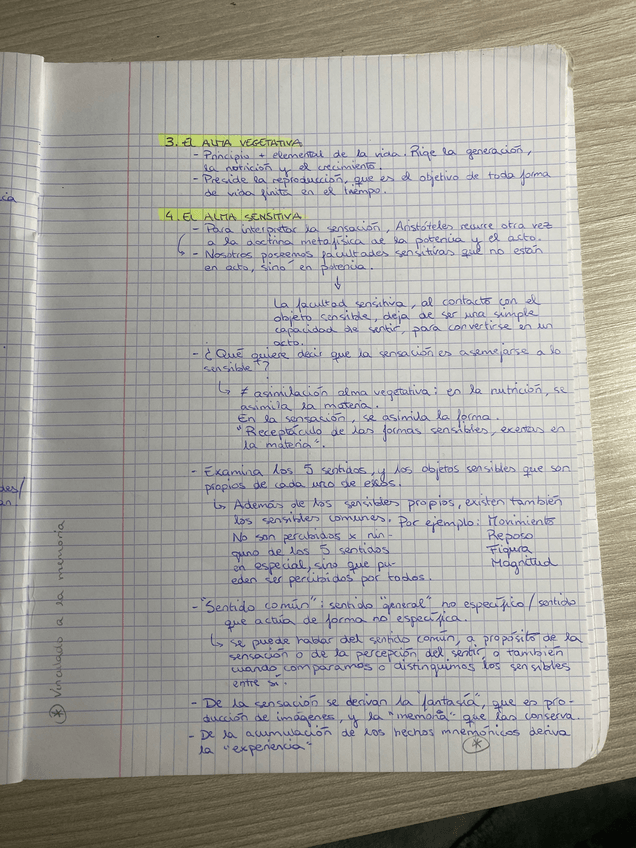 3. EL ALMA VEGETATIVA
- Principio + elemental de la vida. Rige la generación,
la nutrición y el crecimiento
- Preside la reproducción, que es el objetivo de toda forma
de vida finita en el tiempo.
4. EL ALMA SENSITIVA
- Para interpretar la sensación, Aristóteles recurre otra vez
a la doctrina metafísica de la potencia y el acto.
- Nosotros poseemos facultades sensitivas que no están
en acto, sino en potencia.
↓
La facultad sensitiva, al contacto con el
objeto sensible, deja de ser una simple
capacidad de sentir, para convertirse en un
acto.
- ¿Qué quiere decir que la sensación es asemejarse a lo
sensible"?
↳ ≠ asimilación alma vegetativa: en la nutrición, se
asimila la materia.
En la sensación, se asimila la forma.
"Receptáculo de las formas sensibles, exentas en
la materia".
- Examina los 5 sentidos, y los objetos sensibles que son
propios de cada uno de esos.
↳ Además de los sensibles propios, existen también
los sensibles comunes. Por ejemplo: Movimiento
No son percibidos x nin- Reposo
guno de los 5 sentidos Figura
en especial, sino que pu- Magnitud
eden ser percibidos por todos.
- "Sentido común": sentido "general" no específico / sentido
que actúa de forma no específica.
↳ se puede hablar del sentido común, a propósito de la
sensación o de la percepción del sentir o también
cuando comparamos o distinguimos los sensibles
entre sí.
- De la sensación se derivan la fantasía", que es pro-
ducción de imágenes, y la "memoria" que las conserva.
- De la acumulación de los hechos mnemónicos deriva
la "experiencia" *
* Vinculado a la memoria